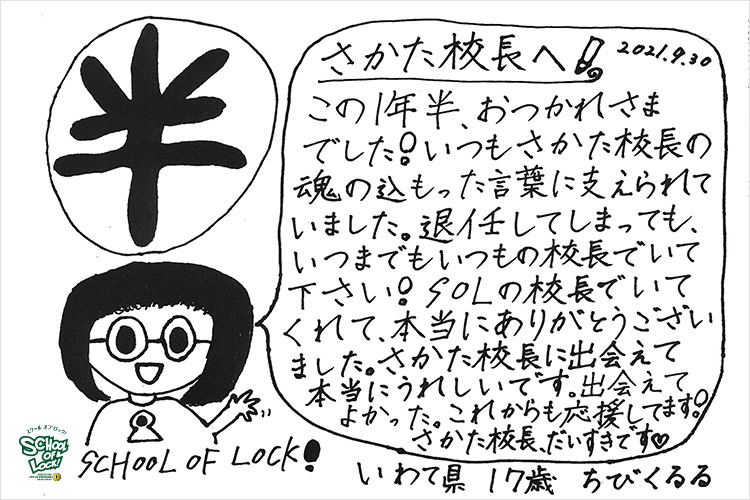 半
さかた校長へ! 2021.9.30
この1年半、おつかれさま
でした!いつもさかた校長の
魂の込もった言葉に支えられて
いました。退任してしまっても、
いつまでもいつもの校長でいて
下さい!SOLの校長でいて
くれて、本当にありがとうござい
ました。さかた校長に出会えて
本当にうれしいです。出会えて
よかった。これからも応援してます!
さかた校長、だいすきです♡
SCHOOL OF LOCK!
いわて県 17歳 ちびくるる
スクール オブ ロック!
SCHOOL
OF
LOCK!